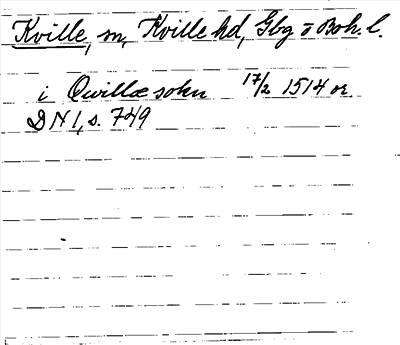 Kville, sn, Kville hd, Gbg o Boh. l.
i Qwillæ sokn 17/2 1514 or.
DN 1, s. 749